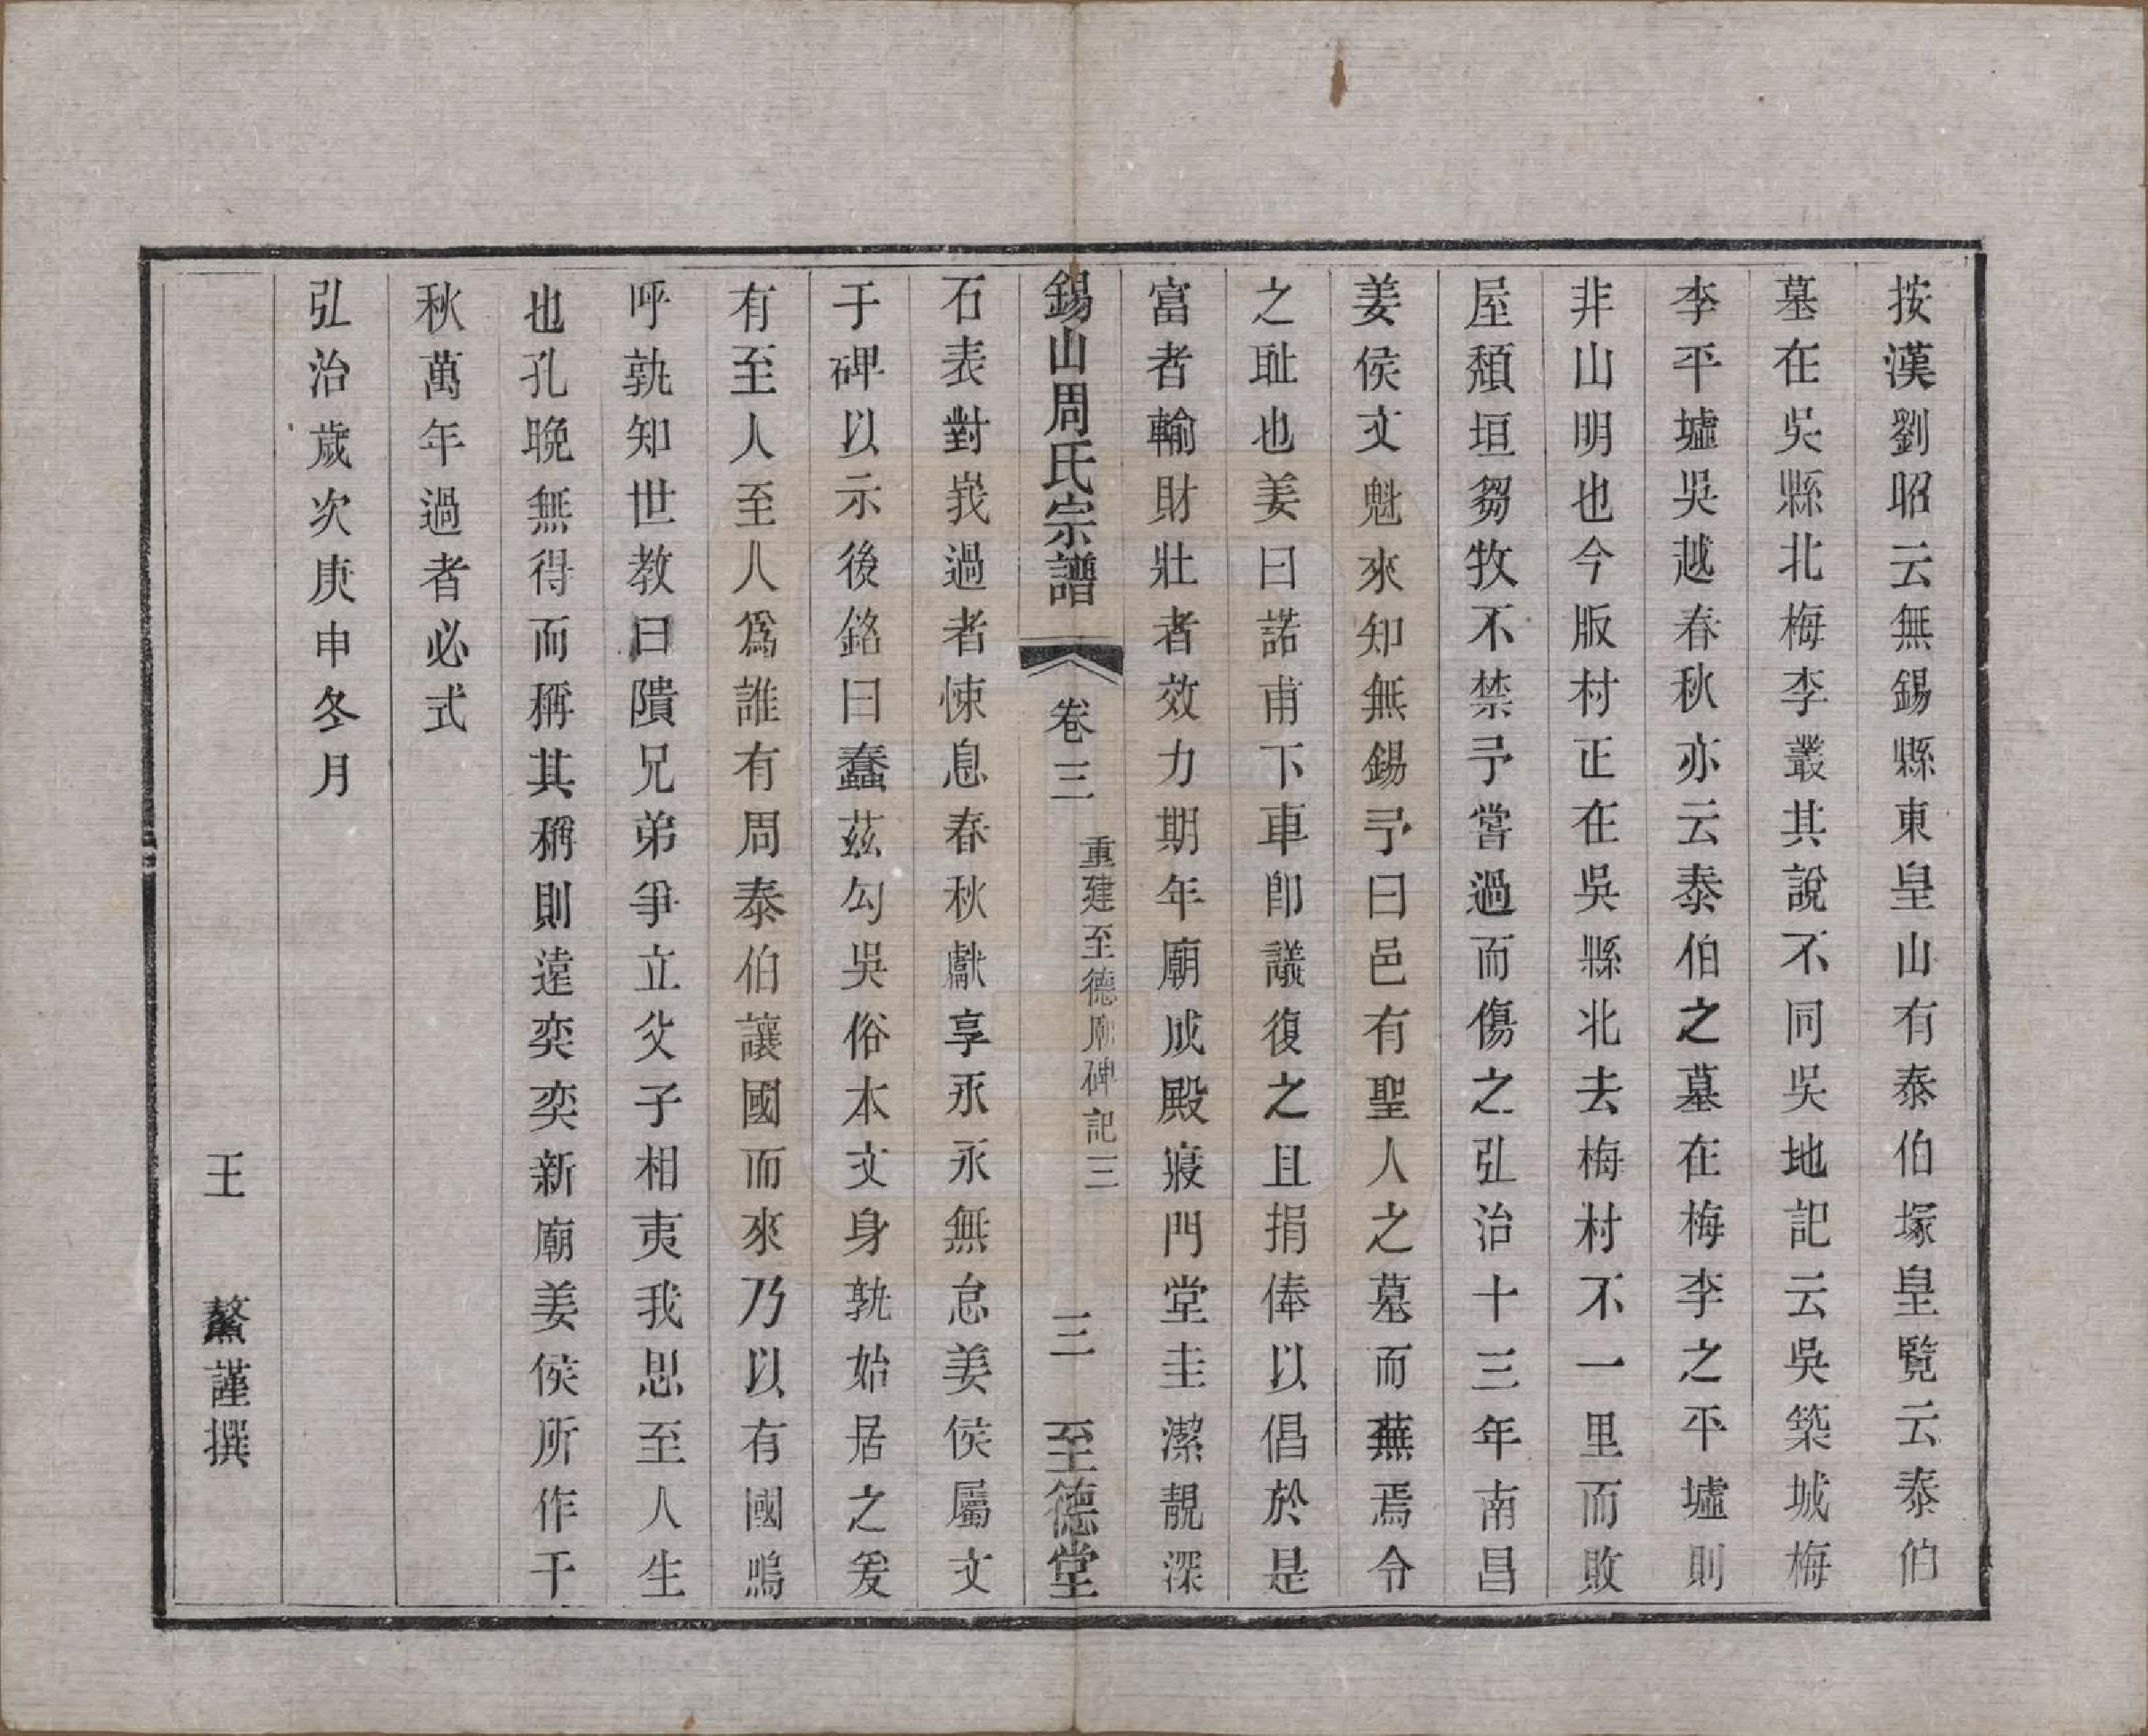 按漢劉昭云無錫縣東皇山有泰伯塚皇覽云泰伯
墓在吳縣北梅李叢其說不同吳地記云吳築城梅
李平墟吳越春秋亦云泰伯之墓在梅李之平墟則
非山明也今版村正在吳縣北去梅村不一里而敗
屋頹垣芻牧不禁予嘗過而傷之弘治十三年南昌
姜侯文魁來知無錫予曰邑有聖人之墓而蕪焉令
之耻也姜曰諾甫下車即議復之且捐俸以倡於是
富者輸財壯者效力期年廟成殿寢門堂圭潔靚深
錫山周氏宗譜 卷三 重建至德廟碑記三 三 至德堂
石表對峩過者悚息春秋獻享永永無怠姜侯屬文
于碑以示後銘曰蠢茲勾吳俗本文身孰始居之爰
有至人至人爲誰有周泰伯讓國而來乃以有國嗚
呼孰知世教曰隤兄弟爭立父子相夷我思至人生
也孔晚無得而稱其稱則遠奕奕新廟姜侯所作千
秋萬年過者必式
弘治歲次庚申冬月
王 鏊謹撰